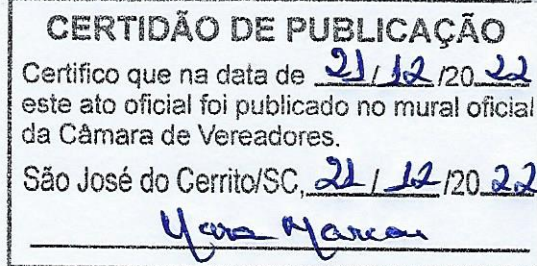 CERTIDÃO DE PUBLICAÇÃO
Certifico que na data de 21/12/2022
este ato oficial foi publicado no mural oficial
da Câmara de Vereadores.
São José do Cerrito/SC, 21/12/2022